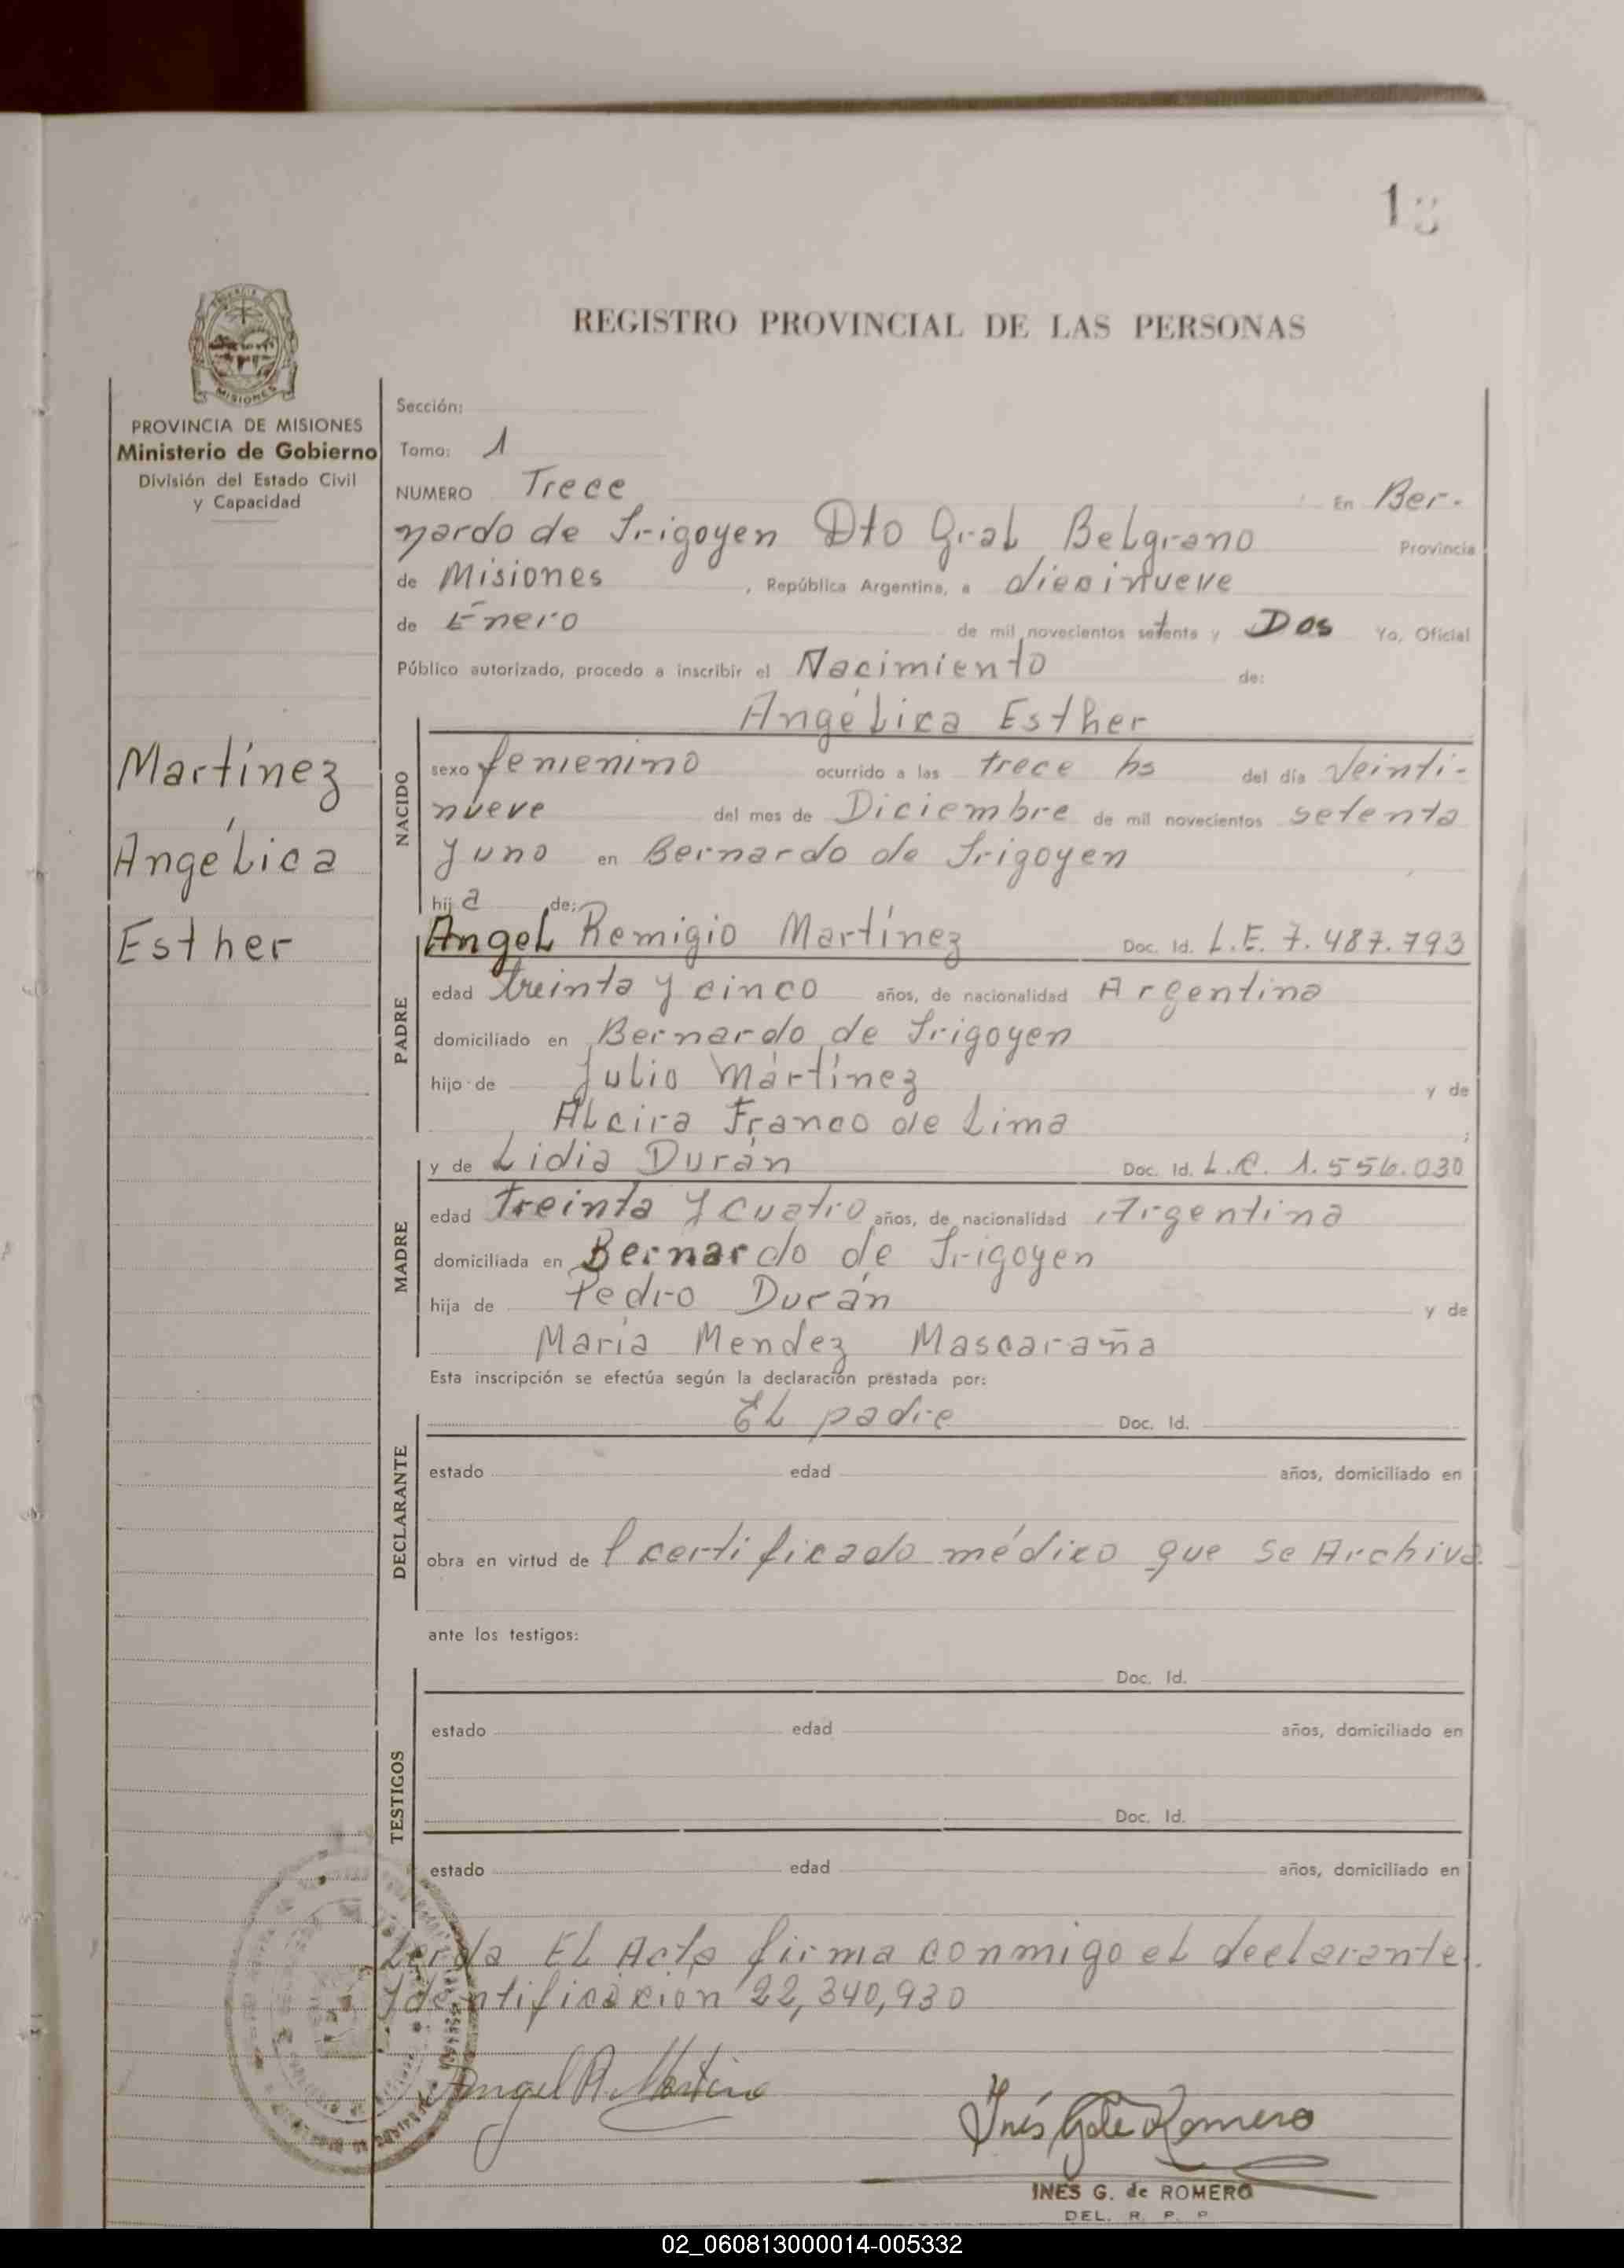 13
REGISTRO PROVINCIAL DE LAS PERSONAS
MISIONES
PROVINCIA DE MISIONES
Ministerio de Gobierno
División del Estado Civil
y Capacidad
Martínez
Angélica
Esther
Sección:
Tomo: 1
NUMERO Trece En Ber-
nardo de Irigoyen Dto Gral Belgrano Provincia
de Misiones, República Argentina, a diecinueve
de Enero de mil novecientos setenta y Dos Yo, Oficial
Público autorizado, procedo a inscribir el Nacimiento de:
Angélica Esther
NACIDO
sexo femenino ocurrido a las trece hs del día Veinti-
nueve del mes de Diciembre de mil novecientos setenta
y uno en Bernardo de Irigoyen
hija de:
PADRE
Angel Remigio Martínez Doc. Id. L.E. 7.487.793
edad treinta y cinco años, de nacionalidad Argentina
domiciliado en Bernardo de Irigoyen
hijo de Julio Martínez y de
Alcira Franco de Lima ;
MADRE
y de Lidia Durán Doc. Id. L.C. 1.556.030
edad Treinta y cuatro años, de nacionalidad Argentina
domiciliada en Bernardo de Irigoyen
hija de Pedro Durán y de
María Mendez Mascaraña
Esta inscripción se efectúa según la declaración prestada por:
DECLARANTE
El padre Doc. Id.
estado edad años, domiciliado en
obra en virtud de l certificado médico que se Archiva
ante los testigos:
TESTIGOS
Doc. Id.
estado edad años, domiciliado en
Doc. Id.
estado edad años, domiciliado en
Leída El Acta firma conmigo el declarante.
Identificación 22,340,930
Angel R. Martínez
Inés G de Romero
INES G. de ROMERO
DEL. R. P. P.
02_060813000014-005332